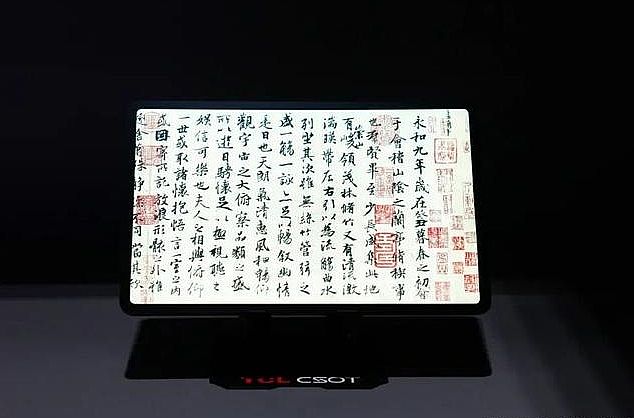 永和九年歲在癸丑暮春之初會
于會稽山陰之蘭亭脩稧事
也群賢畢至少長咸集此地
有崇山峻領茂林脩竹又有清流激
湍暎帶左右引以為流觴曲水
列坐其次雖無絲竹管弦之
盛一觴一詠亦足以暢敘幽情
是日也天朗氣清惠風和暢仰
觀宇宙之大俯察品類之盛
所以遊目騁懷足以極視聽之
娛信可樂也夫人之相與俯仰
一世或取諸懷抱悟言一室之內
或因寄所託放浪形骸之外雖
不同當其
TCL CSOT